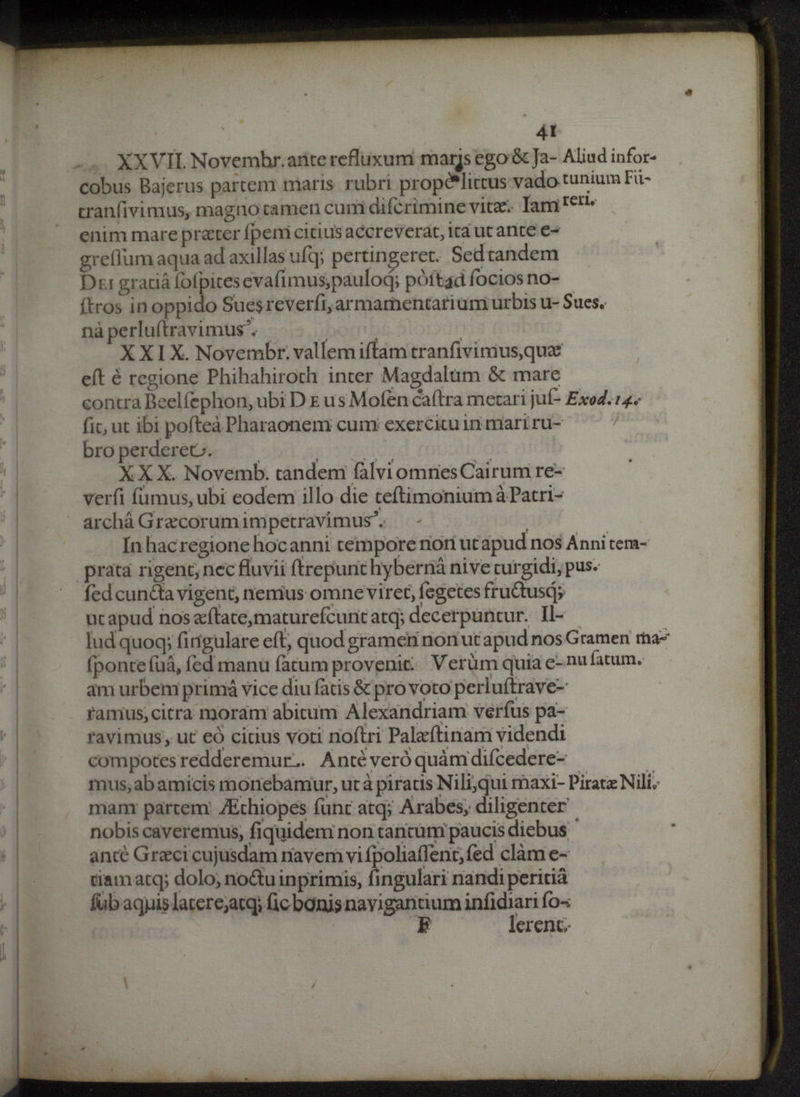 41
XXVII. Novembr. ante refluxum marjs ego & Ja- Aliud infor-
cobus Bajerus partem maris rubri propè littus vado tunium Fü-
tranſivimus, magno tamen cum diſcrimine vitæ. Iam reri.
enim mare præter ſpem citius accreverat, ita ut ante e-
greſſum aqua ad axillas uſq; pertingeret. Sed tandem
DEI gratiâ ſoſpites evaſimus, pauloq; pòſt ad ſocios no-
ſtros in oppido Sues reverſi, armamentarium urbis u- Sues.
nà perluſtravimus.
XXIX. Novembr. vallem iſtam tranſivimus, quæ
eſt è regione Phihahiroth inter Magdalum & mare
contra Beelſephon, ubi DEUS Moſen caſtra metari juſ- Exod. 14.
ſit, ut ibi poſteà Pharaonem cum exercitu in mari ru-
bro perderet.
XXX. Novemb. tandem ſalvi omnes Cairum re-
verſi ſumus, ubi eodem illo die teſtimonium à Patri-
archâ Græcorum impetravimus.
In hac regione hoc anni tempore non ut apud nos Anni tem-
prata rigent, nec fluvii ſtrepunt hybernâ nive turgidi, pus.
ſed cuncta vigent, nemus omne viret, ſegetes fructusq;
ut apud nos æſtate, matureſcunt atq; decerpuntur. Il-
lud quoq; ſingulare eſt, quod gramen non ut apud nos Gramen ma-
ſponte ſuâ, ſed manu ſatum provenit. Verùm quia e- nu ſatum.
am urbem primâ vice diu ſatis & pro voto perluſtrave-
ramus, citra moram abitum Alexandriam verſus pa-
ravimus, ut eò citius voti noſtri Palæſtinam videndi
compotes redderemur. Antè verò quàm diſcedere-
mus, ab amicis monebamur, ut à piratis Nili, qui maxi- Piratæ Nili.
mam partem Æthiopes ſunt atq; Arabes, diligenter
nobis caveremus, ſiquidem non tantum paucis diebus
antè Græci cujusdam navem vi ſpoliaſſent, ſed clàm e-
tiam atq; dolo, noctu inprimis, ſingulari nandi peritiâ
ſub aquis latere, atq; ſic bonis navigantium inſidiari ſo-
F lerent.